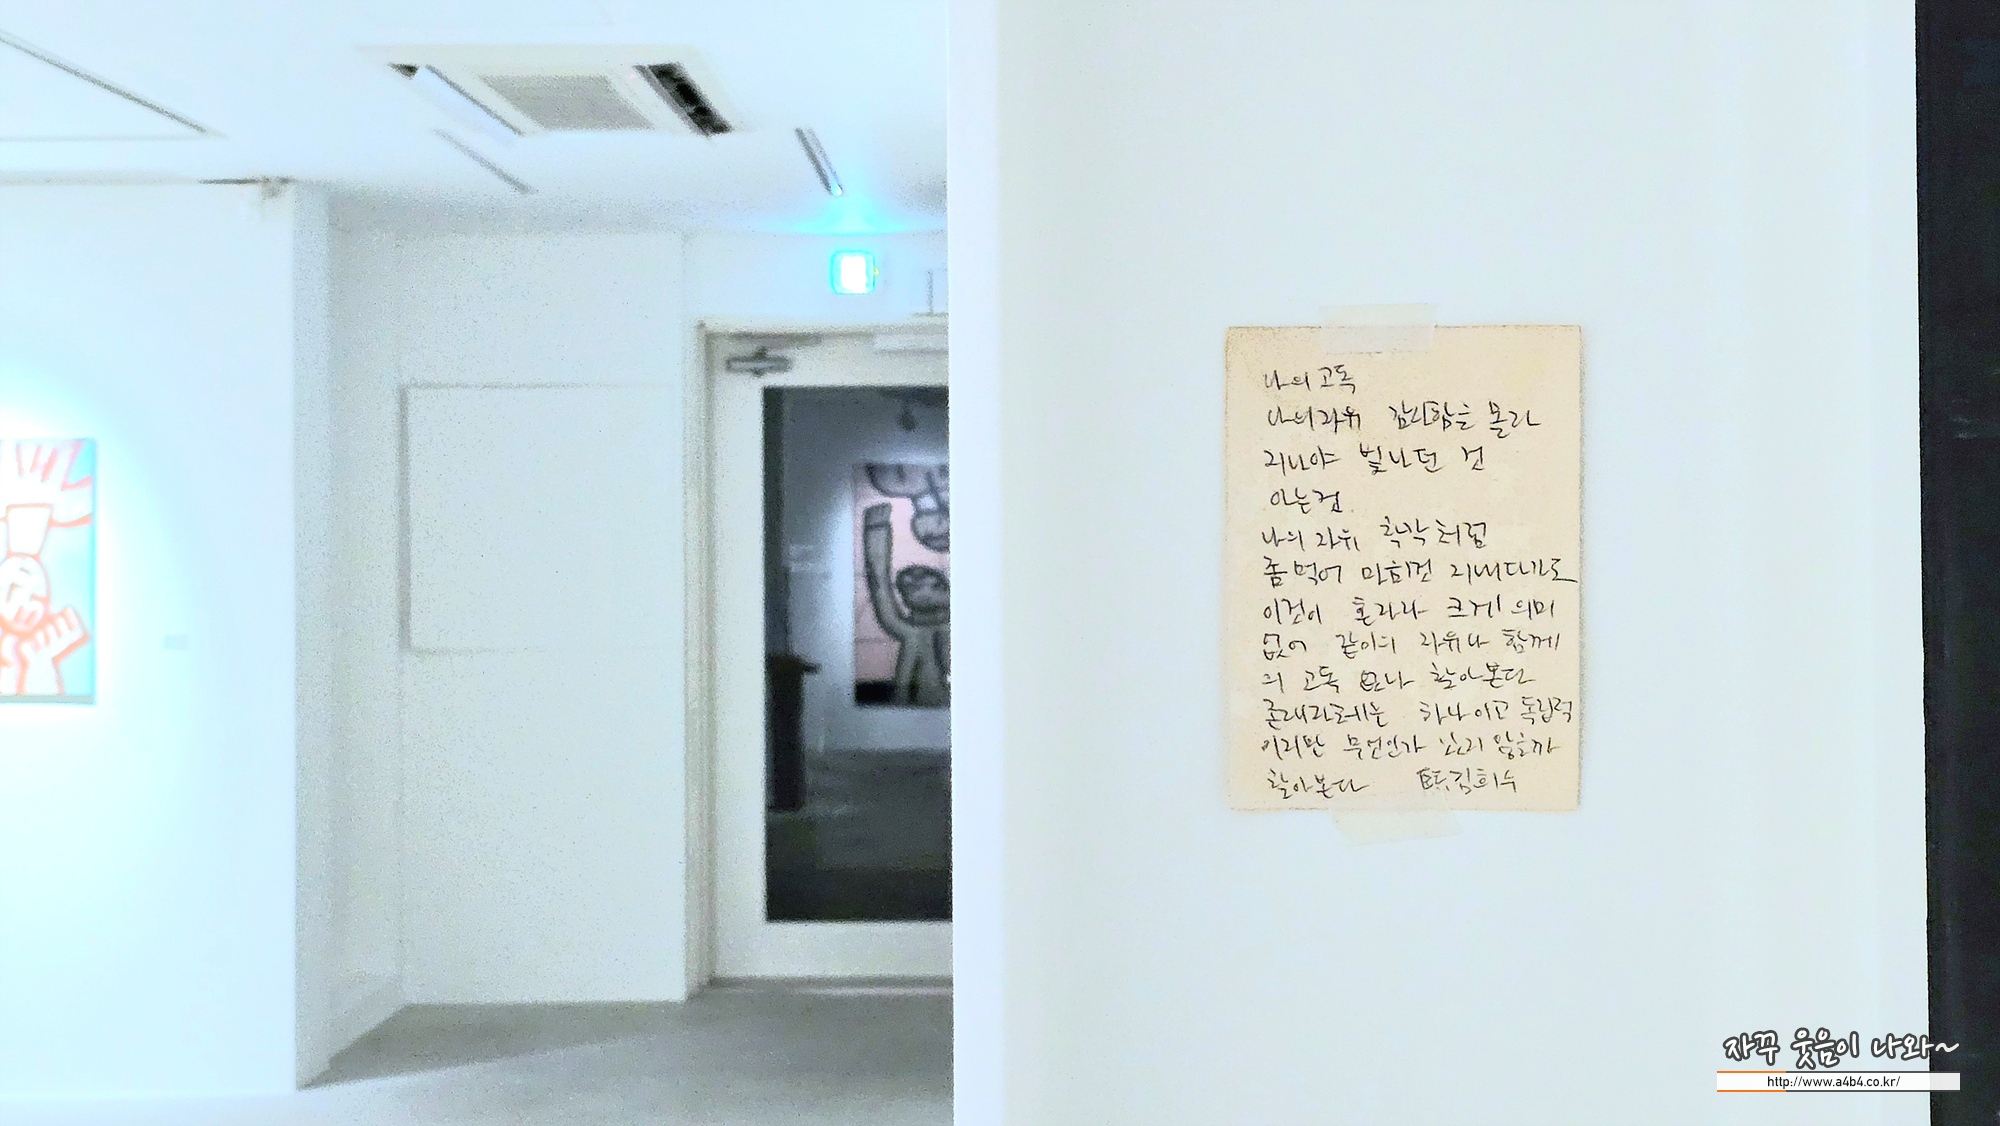 나의 고독
나의 자유 감사함을 몰라
지나야 빛나던 건
아는 것.
나의 자유 착각처럼
좀먹어 마치 지내다가도
이것이 혼자라 크게 의미
없어 같이의 자유나 함께
의 고독 으나 찾아본다
존재자체는 하나이고 독립적
이지만 무언인가 있지 않을까
찾아본다 김희수
자꾸 웃음이 나와~
http://www.a4b4.co.kr/